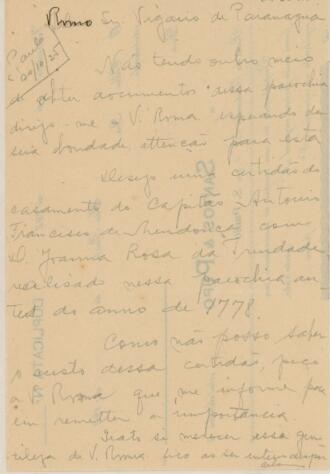 Rvmo Snr. Vigario de Paranaguá
Paulo
20/10/25
Não tendo outro meio
de obter documentos dessa parochia
dirijo-me a V. Rvma esperando de
sua bondade attenção para esta
Desejo uma certidão do
casamento do Capitão Antonio
Francisco de Mendonça com
D. Joanna Rosa da Trindade
realisado nessa parochia an
tes do anno de 1778.
Como não posso saber
o custo dessa certidão, peço
a V. Rvma que me informe pa
em remetter a importancia.
si merecer essa gen
tileza de V. Rvma fico ao seu inteiro dispor
DUPLICATA Nº